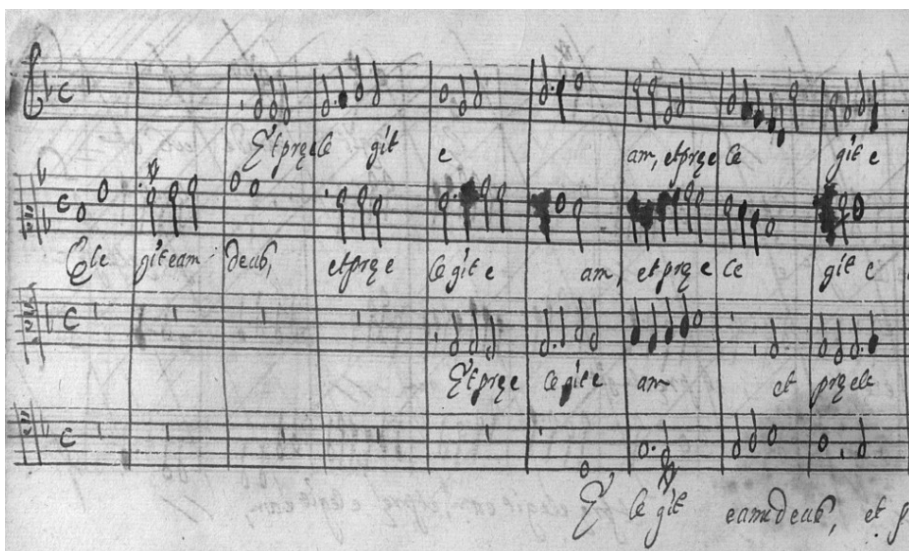 Et pręele git e am, et pręe le git e
Ele git eam deus, et pręe le git e am, et pręe le git e
Et pręe le git e am et pręele
E le git eam deus, et p